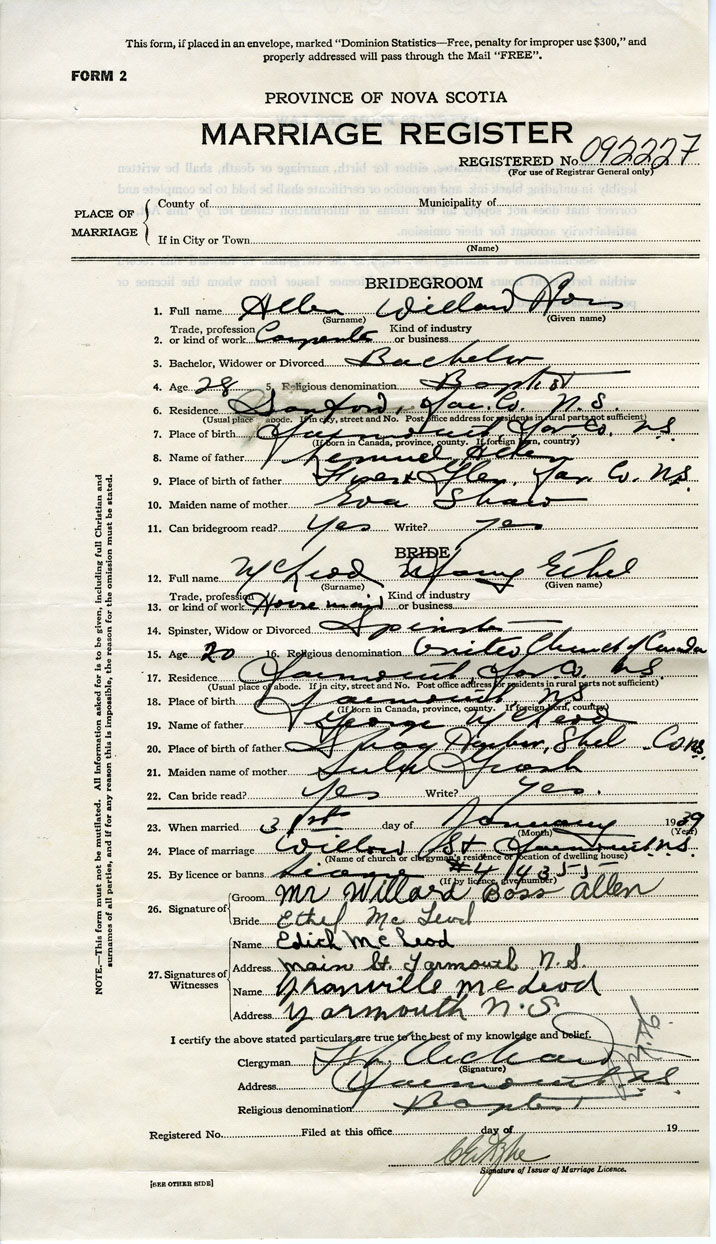 This form, if placed in an envelope, marked "Dominion Statistics—Free, penalty for improper use $300," and
properly addressed will pass through the Mail "FREE".
FORM 2
PROVINCE OF NOVA SCOTIA
MARRIAGE REGISTER
REGISTERED No 092227
(For use of Registrar General only)
PLACE OF MARRIAGE
County of Municipality of
If in City or Town
(Name)
BRIDEGROOM
1. Full name Allen Willard Ross
(Surname) (Given name)
2. Trade, profession or kind of work Carpenter Kind of industry or business
3. Bachelor, Widower or Divorced Bachelor
4. Age 28 5. Religious denomination Baptist
6. Residence Sanford, Yar. Co. N.S.
(Usual place of abode. If in city, street and No. Post office address for residents in rural parts not sufficient)
7. Place of birth Yarmouth, Yar. Co. N.S.
(If born in Canada, province, county. If foreign born, country)
8. Name of father Lemuel Allen
9. Place of birth of father Glen, Yar. Co. N.S.
10. Maiden name of mother Eva Shaw
11. Can bridegroom read? Yes Write? Yes
BRIDE
12. Full name McLeod Ethel
(Surname) (Given name)
13. Trade, profession or kind of work House maid Kind of industry or business
14. Spinster, Widow or Divorced Spinster
15. Age 20 16. Religious denomination United Church of Canada
17. Residence Yarmouth, Yar. Co. N.S.
(Usual place of abode. If in city, street and No. Post office address for residents in rural parts not sufficient)
18. Place of birth Yarmouth N.S.
(If born in Canada, province, county. If foreign born, country)
19. Name of father George McLeod
20. Place of birth of father Harbor, Shel. Co. N.S.
21. Maiden name of mother
22. Can bride read? Yes Write? Yes.
23. When married 31st day of January 1939
(Month) (Year)
24. Place of marriage Willow St Yarmouth N.S.
(Name of church or clergyman's residence or location of dwelling house)
25. By licence or banns License
(If by licence, give number)
26. Signature of
Groom Mr Willard Boss Allen
Bride Ethel Mc Leod
27. Signatures of Witnesses
Name Edich McLeod
Address main St. Yarmouth N.S.
Name Granville McLeod
Address Yarmouth N.S.
I certify the above stated particulars are true to the best of my knowledge and belief.
Clergyman
(Signature)
Address Yarmouth N.S.
Religious denomination Baptist
Registered No. Filed at this office day of 19
Signature of Issuer of Marriage Licence.
[SEE OTHER SIDE]
NOTE.—This form must not be mutilated. All information asked for is to be given, including full Christian and
surnames of all parties, and if for any reason this is impossible, the reason for the omission must be stated.